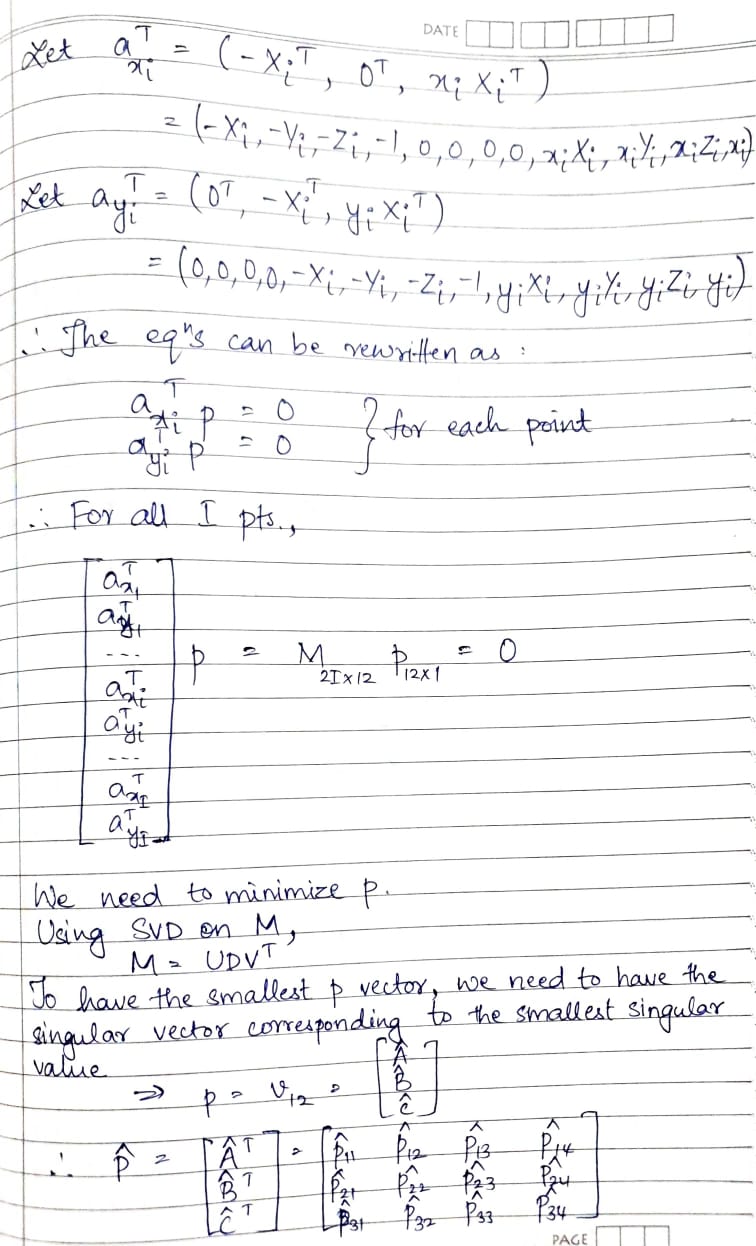 DATE
Let a_{x_i}^T = (-X_i^T, 0^T, x_i X_i^T)
= (-X_i, -Y_i, -Z_i, -1, 0, 0, 0, 0, x_iX_i, x_iY_i, x_iZ_i, x_i)
Let a_{y_i}^T = (0^T, -X_i^T, y_i X_i^T)
= (0, 0, 0, 0, -X_i, -Y_i, -Z_i, -1, y_iX_i, y_iY_i, y_iZ_i, y_i)
∴ The eqⁿs can be rewritten as :
a_{x_i}^T p = 0 } for each point
a_{y_i}^T p = 0
∴ For all I pts.,
a_{x_1}^T
a_{y_1}^T
---
a_{x_i}^T p = M_{2I×12} p_{12×1} = 0
a_{y_i}^T
---
a_{x_I}^T
a_{y_I}^T
We need to minimize p.
Using SVD on M,
M = UDV^T
To have the smallest p vector, we need to have the
singular vector corresponding to the smallest singular
value
⇒ p = v_{12} = [Â B̂ Ĉ]
∴ P̂ = [Â^T B̂^T Ĉ^T] = [P̂_{11} P̂_{12} P̂_{13} P̂_{14}
P̂_{21} P̂_{22} P̂_{23} P̂_{24}
P̂_{31} P̂_{32} P̂_{33} P̂_{34}]
PAGE